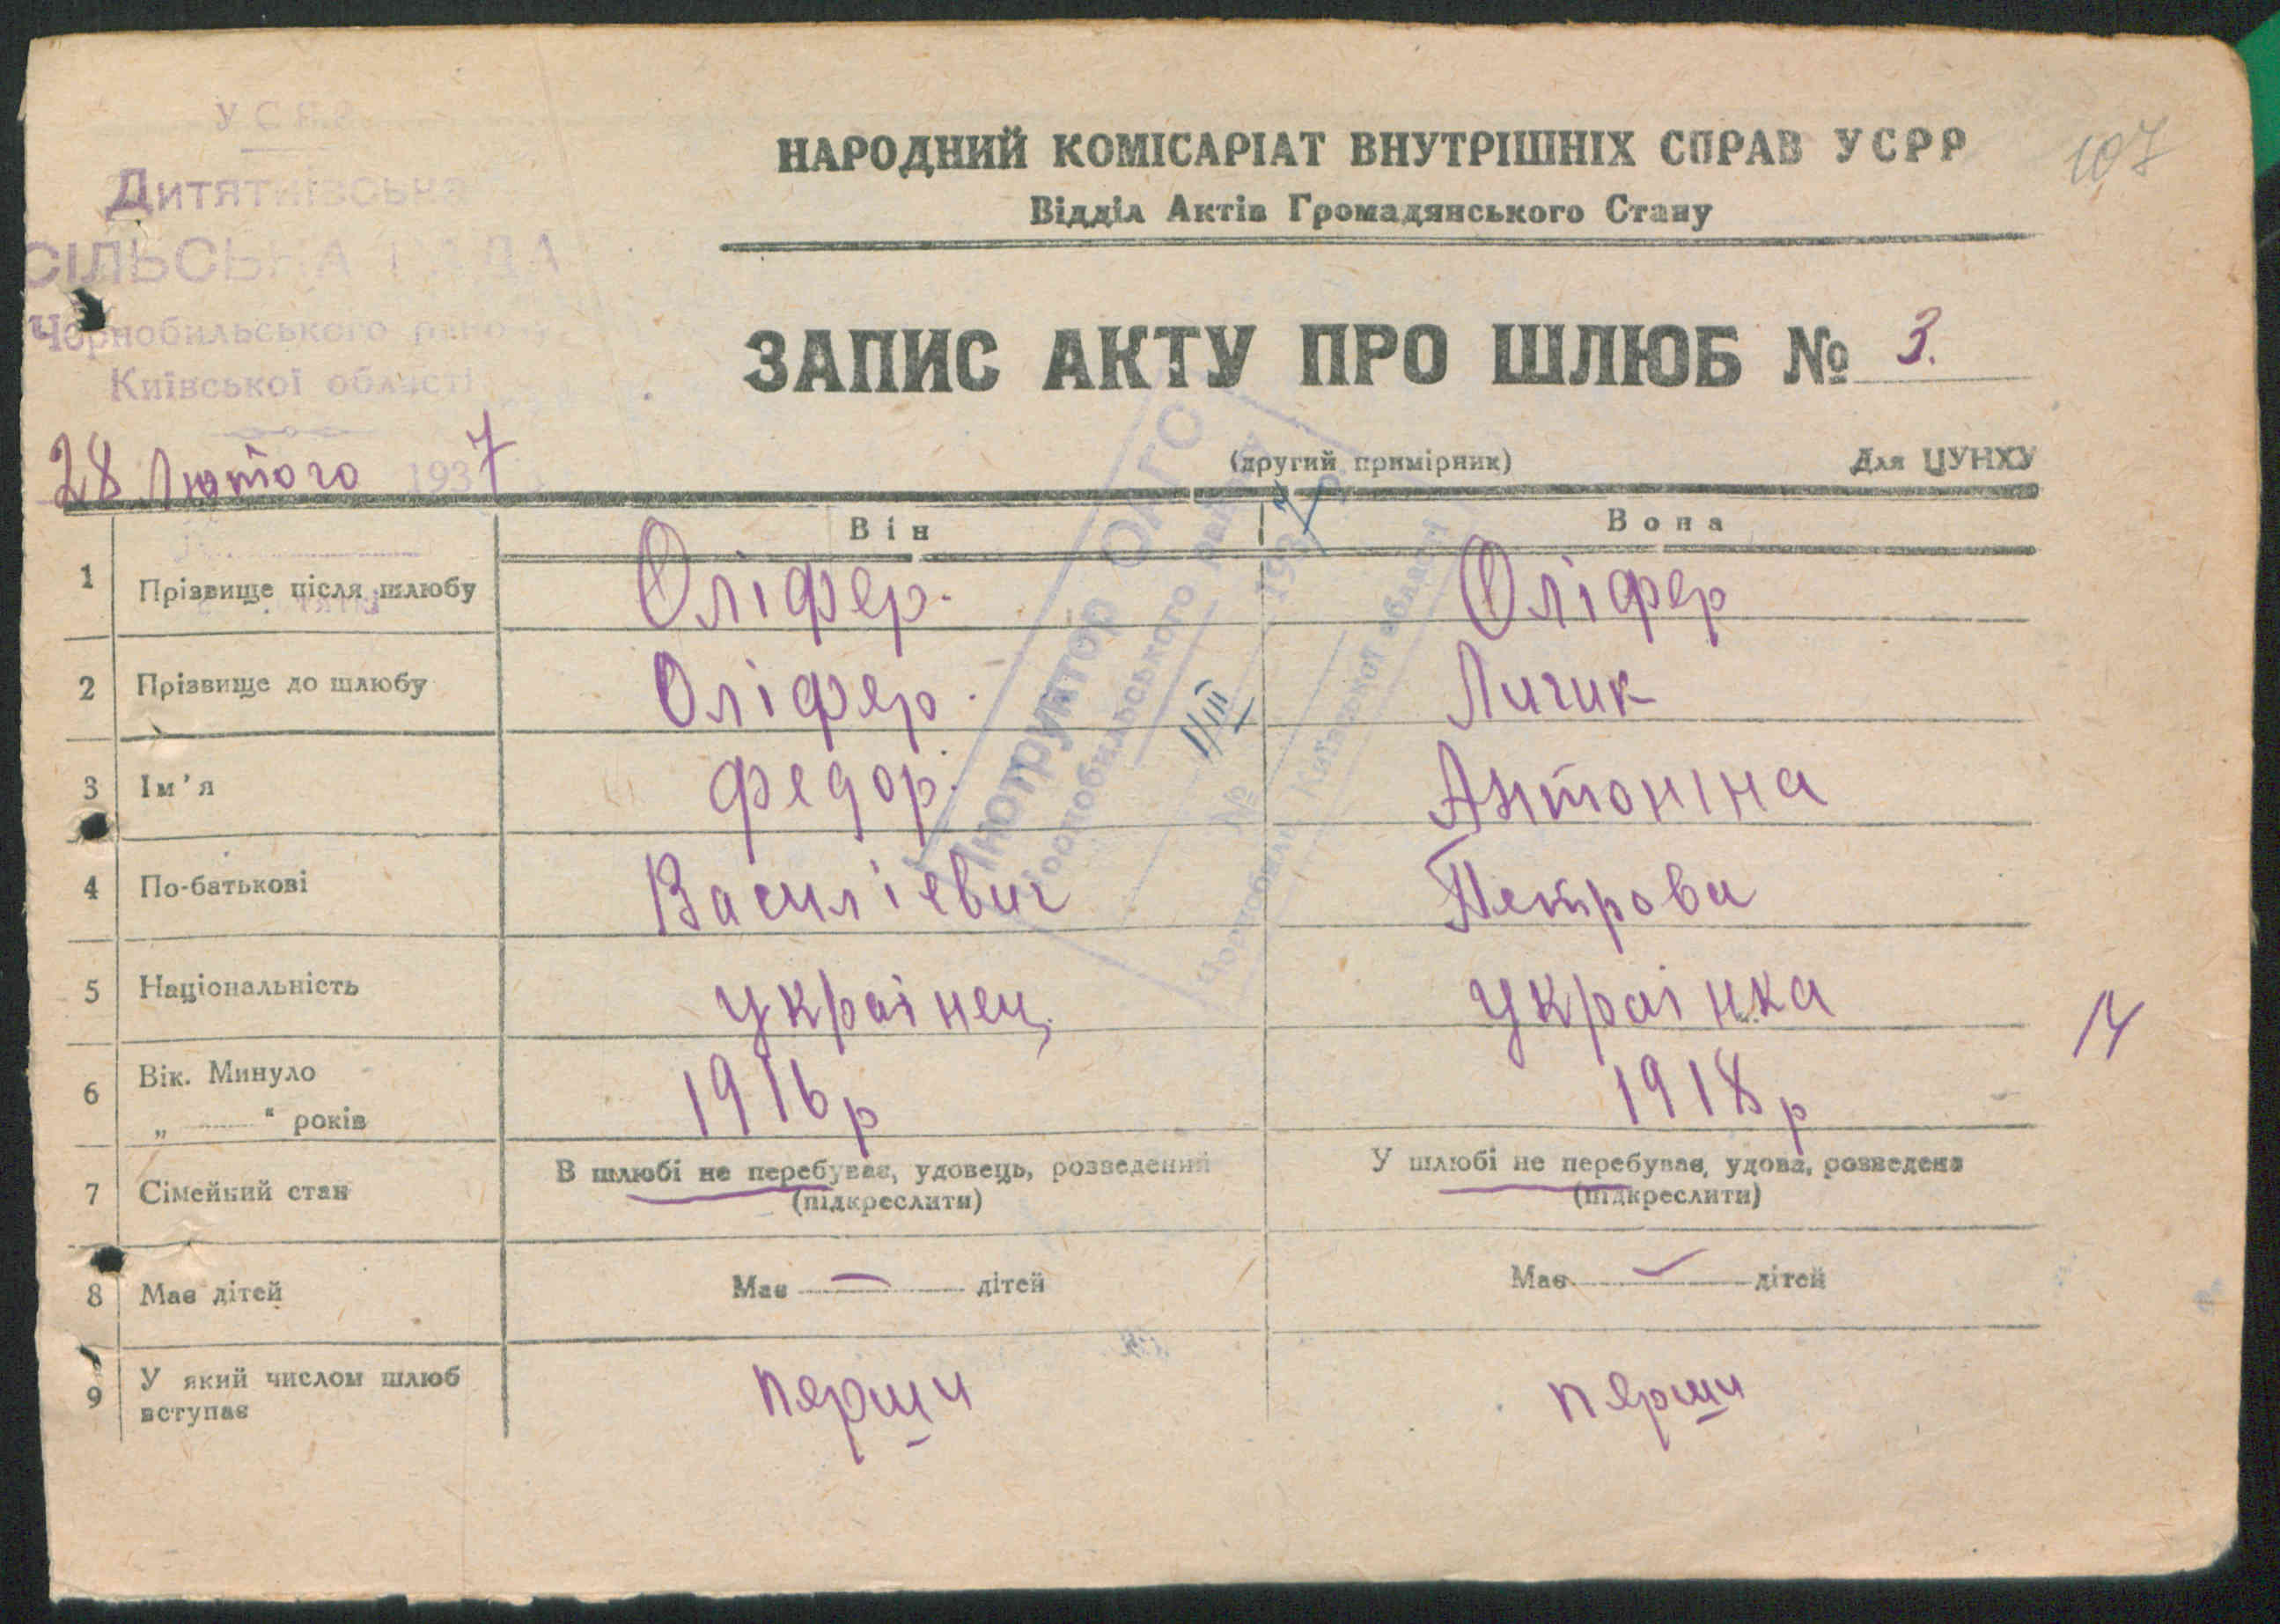 УСРР
Дитятківська
СІЛЬСЬКА РАДА
Чорнобильського району
Київської області
28 Лютого 1937
НАРОДНИЙ КОМІСАРІАТ ВНУТРІШНІХ СПРАВ УСРР
107
Відділ Актів Громадянського Стану
ЗАПИС АКТУ ПРО ШЛЮБ № 3.
(другий примірник) Для ЦУНХУ
Інструктор ОАГС
Чорнобильського району
1/III 1937
№
Чорнобиль, Київської області
Він Вона
1 Прізвище після шлюбу Оліфер. Оліфер
2 Прізвище до шлюбу Оліфер. Личик
3 Ім'я Федор. Антоніна
4 По-батькові Василіевич Петрова
5 Національність украінец украінка
14
6 Вік. Минуло 1916 р 1918 р
„ “ років
7 Сімейний стан В шлюбі не перебуває, удовець, розведений У шлюбі не перебуває, удова, розведена
(підкреслити) (підкреслити)
8 Має дітей Має — дітей Має — дітей
9 У який числом шлюб перши перши
вступає